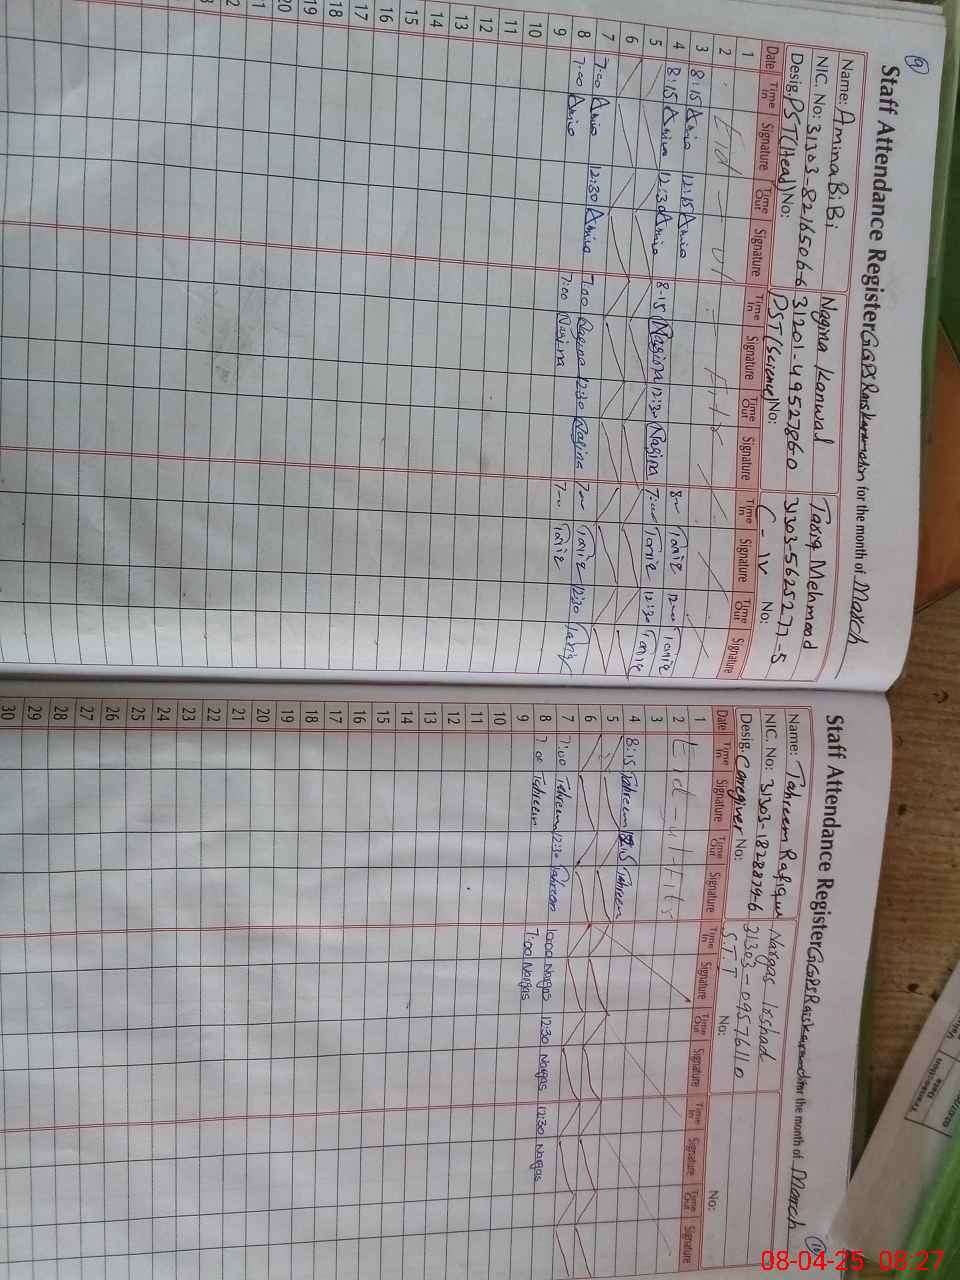 9
Staff Attendance Register GGPS Rais karamdin for the month of March
Name: Amina BiBi Nagina Kanwal Tariq Mehmood
NIC. No: 31303-8216506-6 31201-4952786-0 31303-5625277-5
Desig. PST (Head) No: PST (Science) No: C - IV No:
Date Time In Signature Time Out Signature Time In Signature Time Out Signature Time In Signature Time Out Signature
1
2 Eid - ul - Fitr
3 8:15 Amina 12:15 Amina 8:00 Tariq 12:00 Tariq
4 8:15 Amina 12:30 Amina 8-15 Nagina 12:30 Nagina 7:00 Tariq 12:30 Tariq
5
6
7 7:00 Amina 12:30 Amina 7:00 Nagina 12:30 Nagina 7:00 Tariq 12:30 Tariq
8 7:00 Amina 7:00 Nagina 7:00 Tariq
9
10
11
12
13
14
15
16
17
18
19
20
21
22
Staff Attendance Register GGPS Rais karamdin for the month of March
10
Name: Tahreem Rafique Nargas Irshad
NIC. No: 31303-1828879-6 31303-0957611 0
Desig. Caregiver No: S.T.T No: No:
Date Time In Signature Time Out Signature Time In Signature Time Out Signature Time In Signature Time Out Signature
1
2 Eid - ul - Fitr
3
4 8:15 Tahreem 12:15 Tahreem
5
6
7 7:00 Tahreem 12:30 Tahreem 10:00 Nargas 12:30 Nargas 12:30 Nargas
8 7:00 Tahreem 7:00 Nargas
9
10
11
12
13
14
15
16
17
18
19
20
21
22
23
24
25
26
27
28
29
30
Transaction
Date
08-04-25 08:27